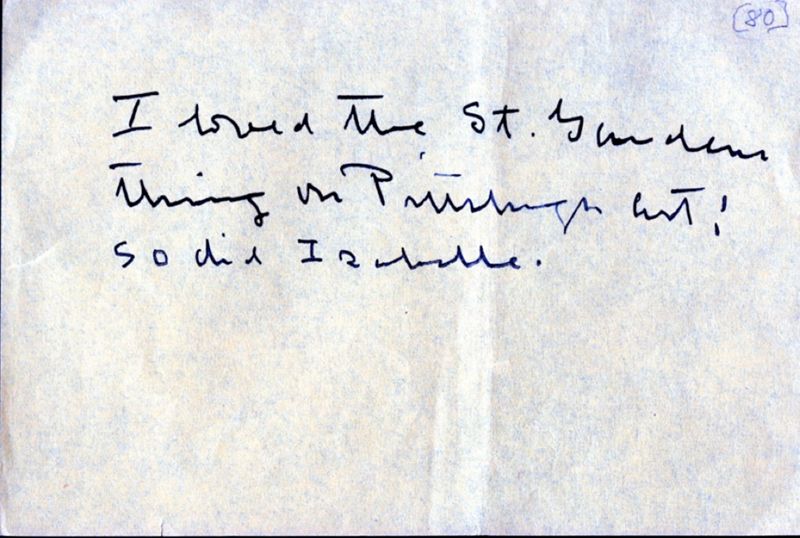 [80]
I loved the St. Gaudens
thing on Pittsburgh art!
So did Isabelle.